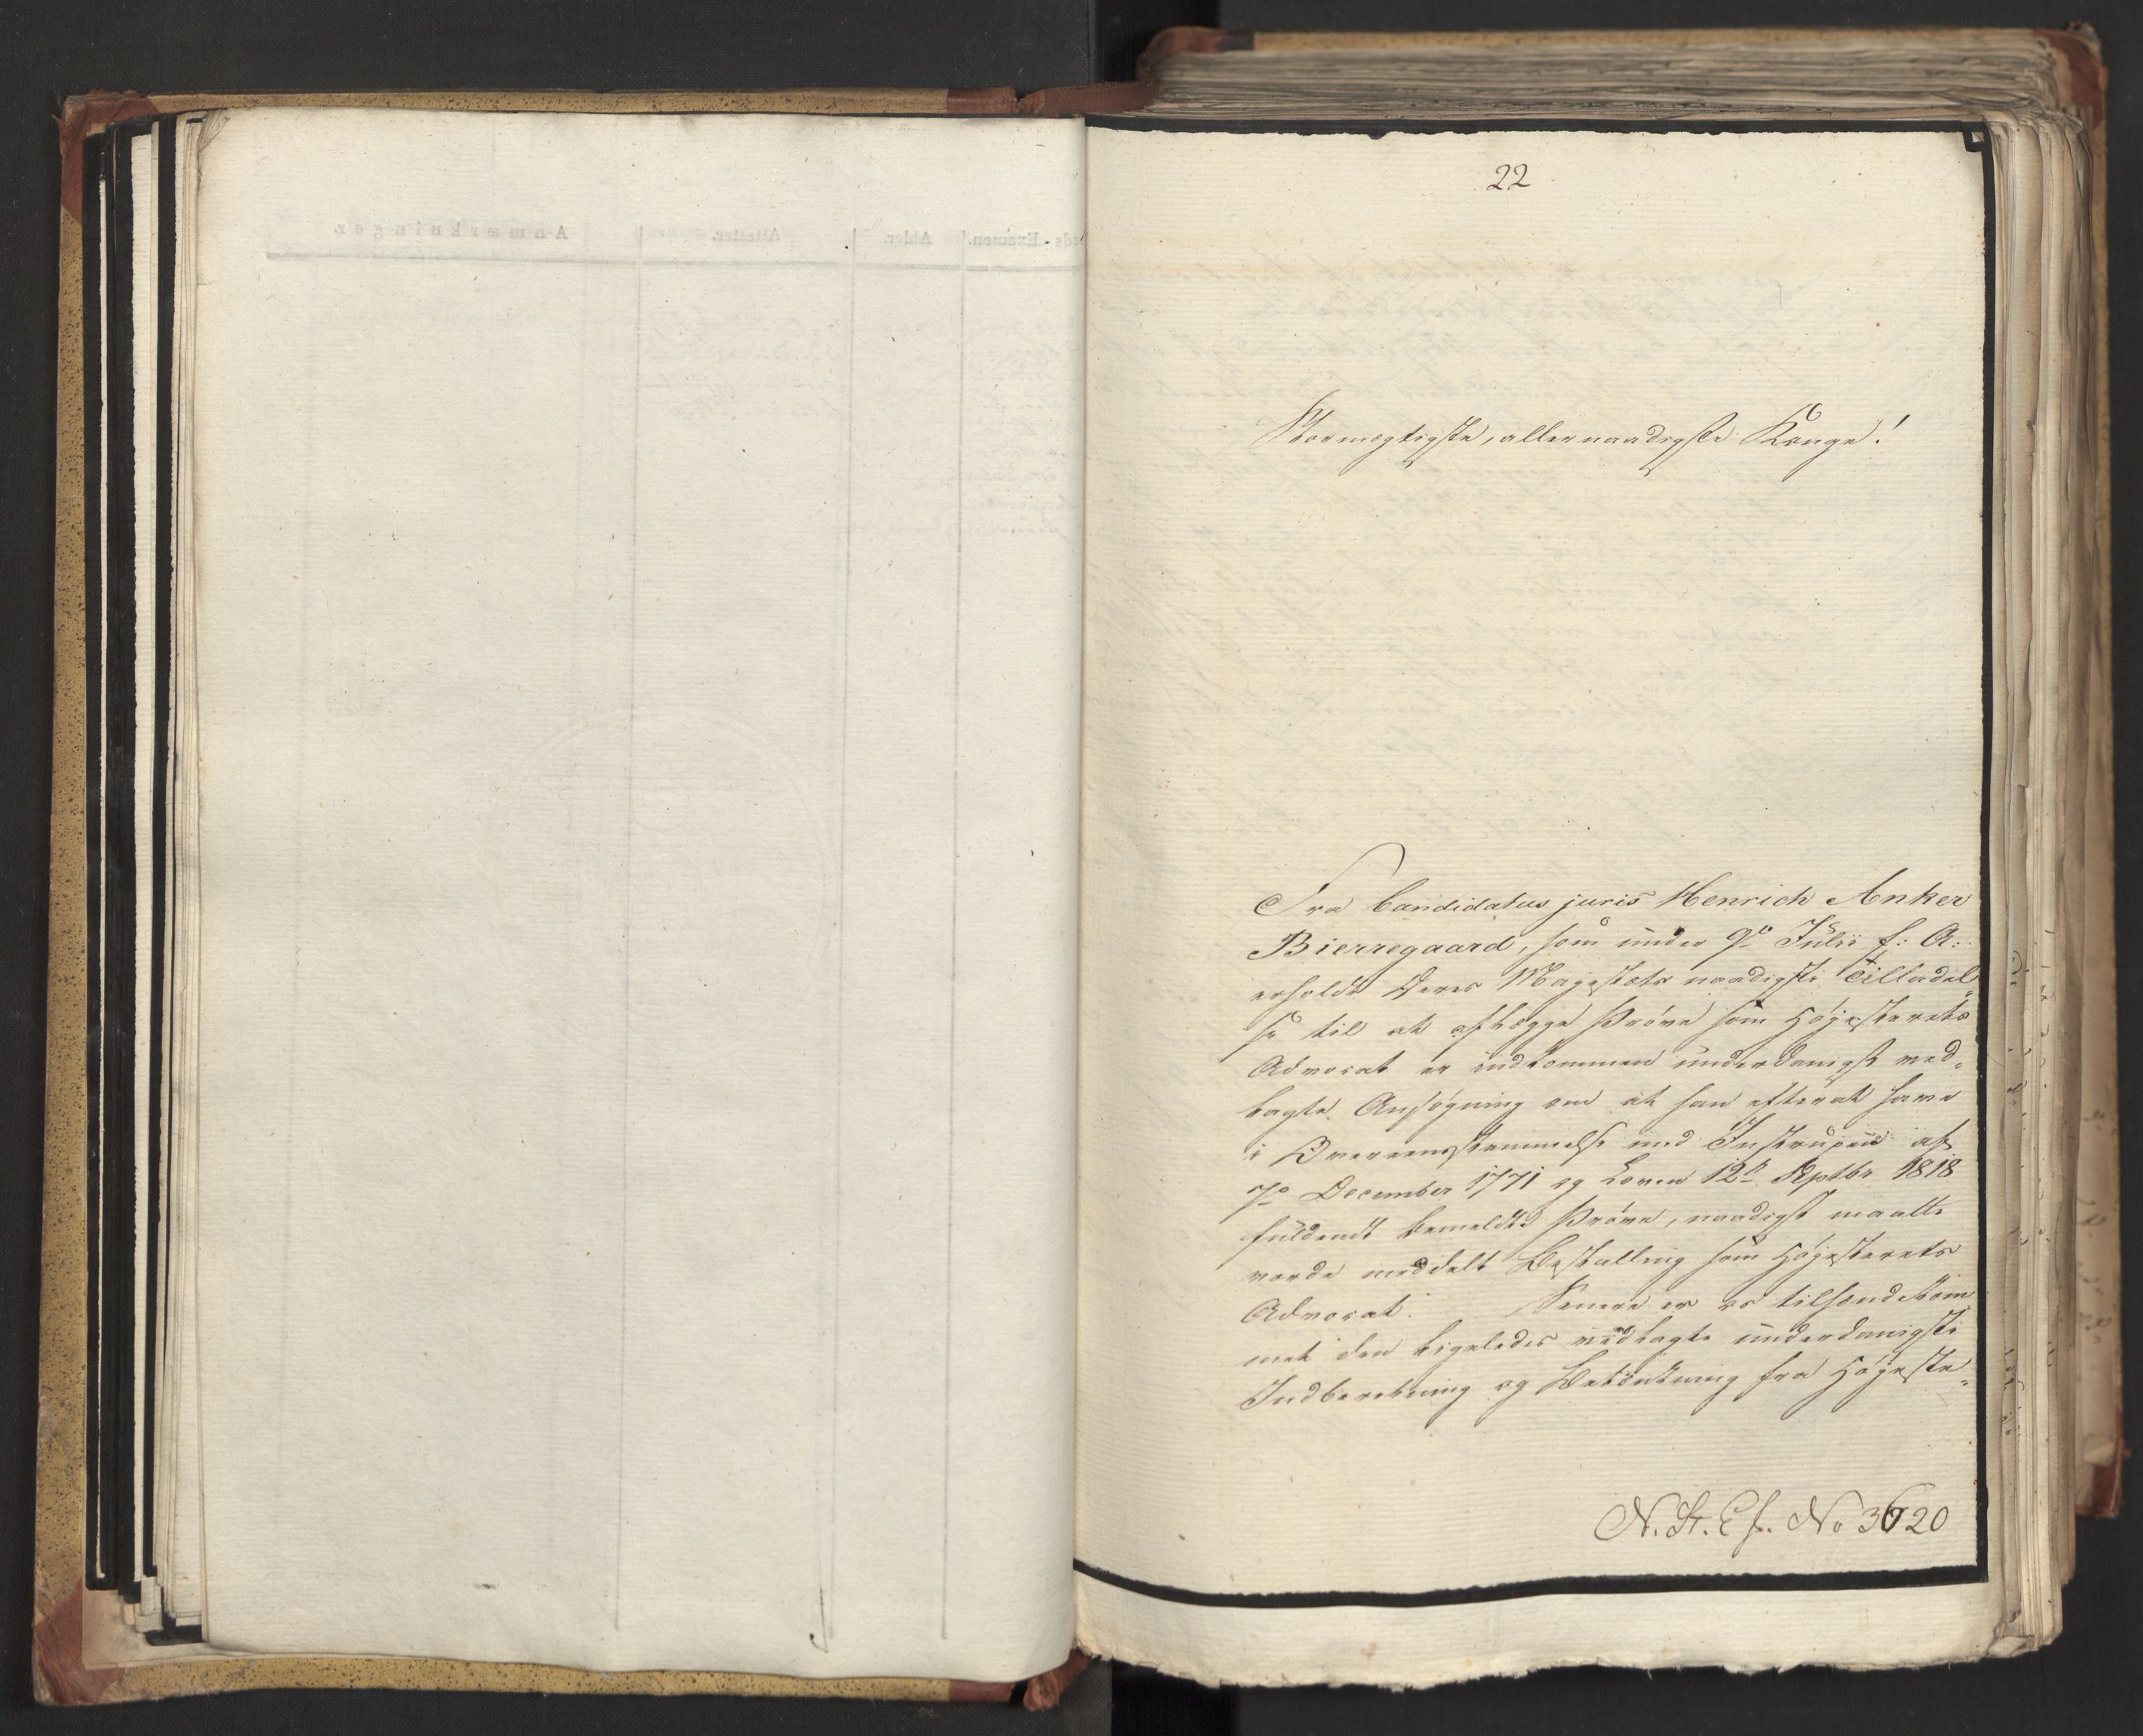 22
Stormægtigste, allernaadigste Konge!
Fra Candidatus juris Henrich Anker
Bierregaard, som under 9de Julii f: A:
erholdt Deres Majestæts naadigste Tilladel„
se til at aflægge Prøve som Højesterets
Advocat er indkommen underdanigst ved„
lagte Ansøgning om at han efterat have
i Overeensstemmelse med Instruxen af
7de December 1771 og Loven 12te Septbr 1818
fuldendt bemeldte Prøve, naadigst maatte
vorde meddelt Bestalling som Højesterets
Advocat. Senere er os tilsendt kom
met den ligeledes vedlagte underdanigste
Indberetning og Betænkning fra Højeste„
N. St. Ex. No 3620
Anmærkninger.
Attester.
Alder.
eds-Examen.